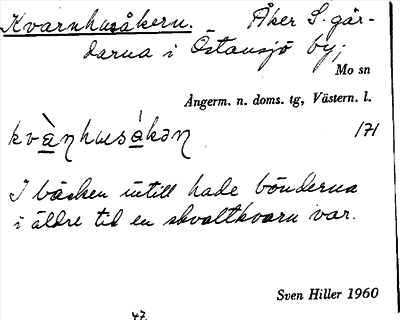 Kvarnhusåkern. Åker S. går-
darna i Östansjö by;
Mo sn
Ångerm. n. doms. tg, Västern. l.
kvànhusákən 171
I bäcken intill hade bönderna
i äldre tid en skvaltkvarn var.
Sven Hiller 1960
47